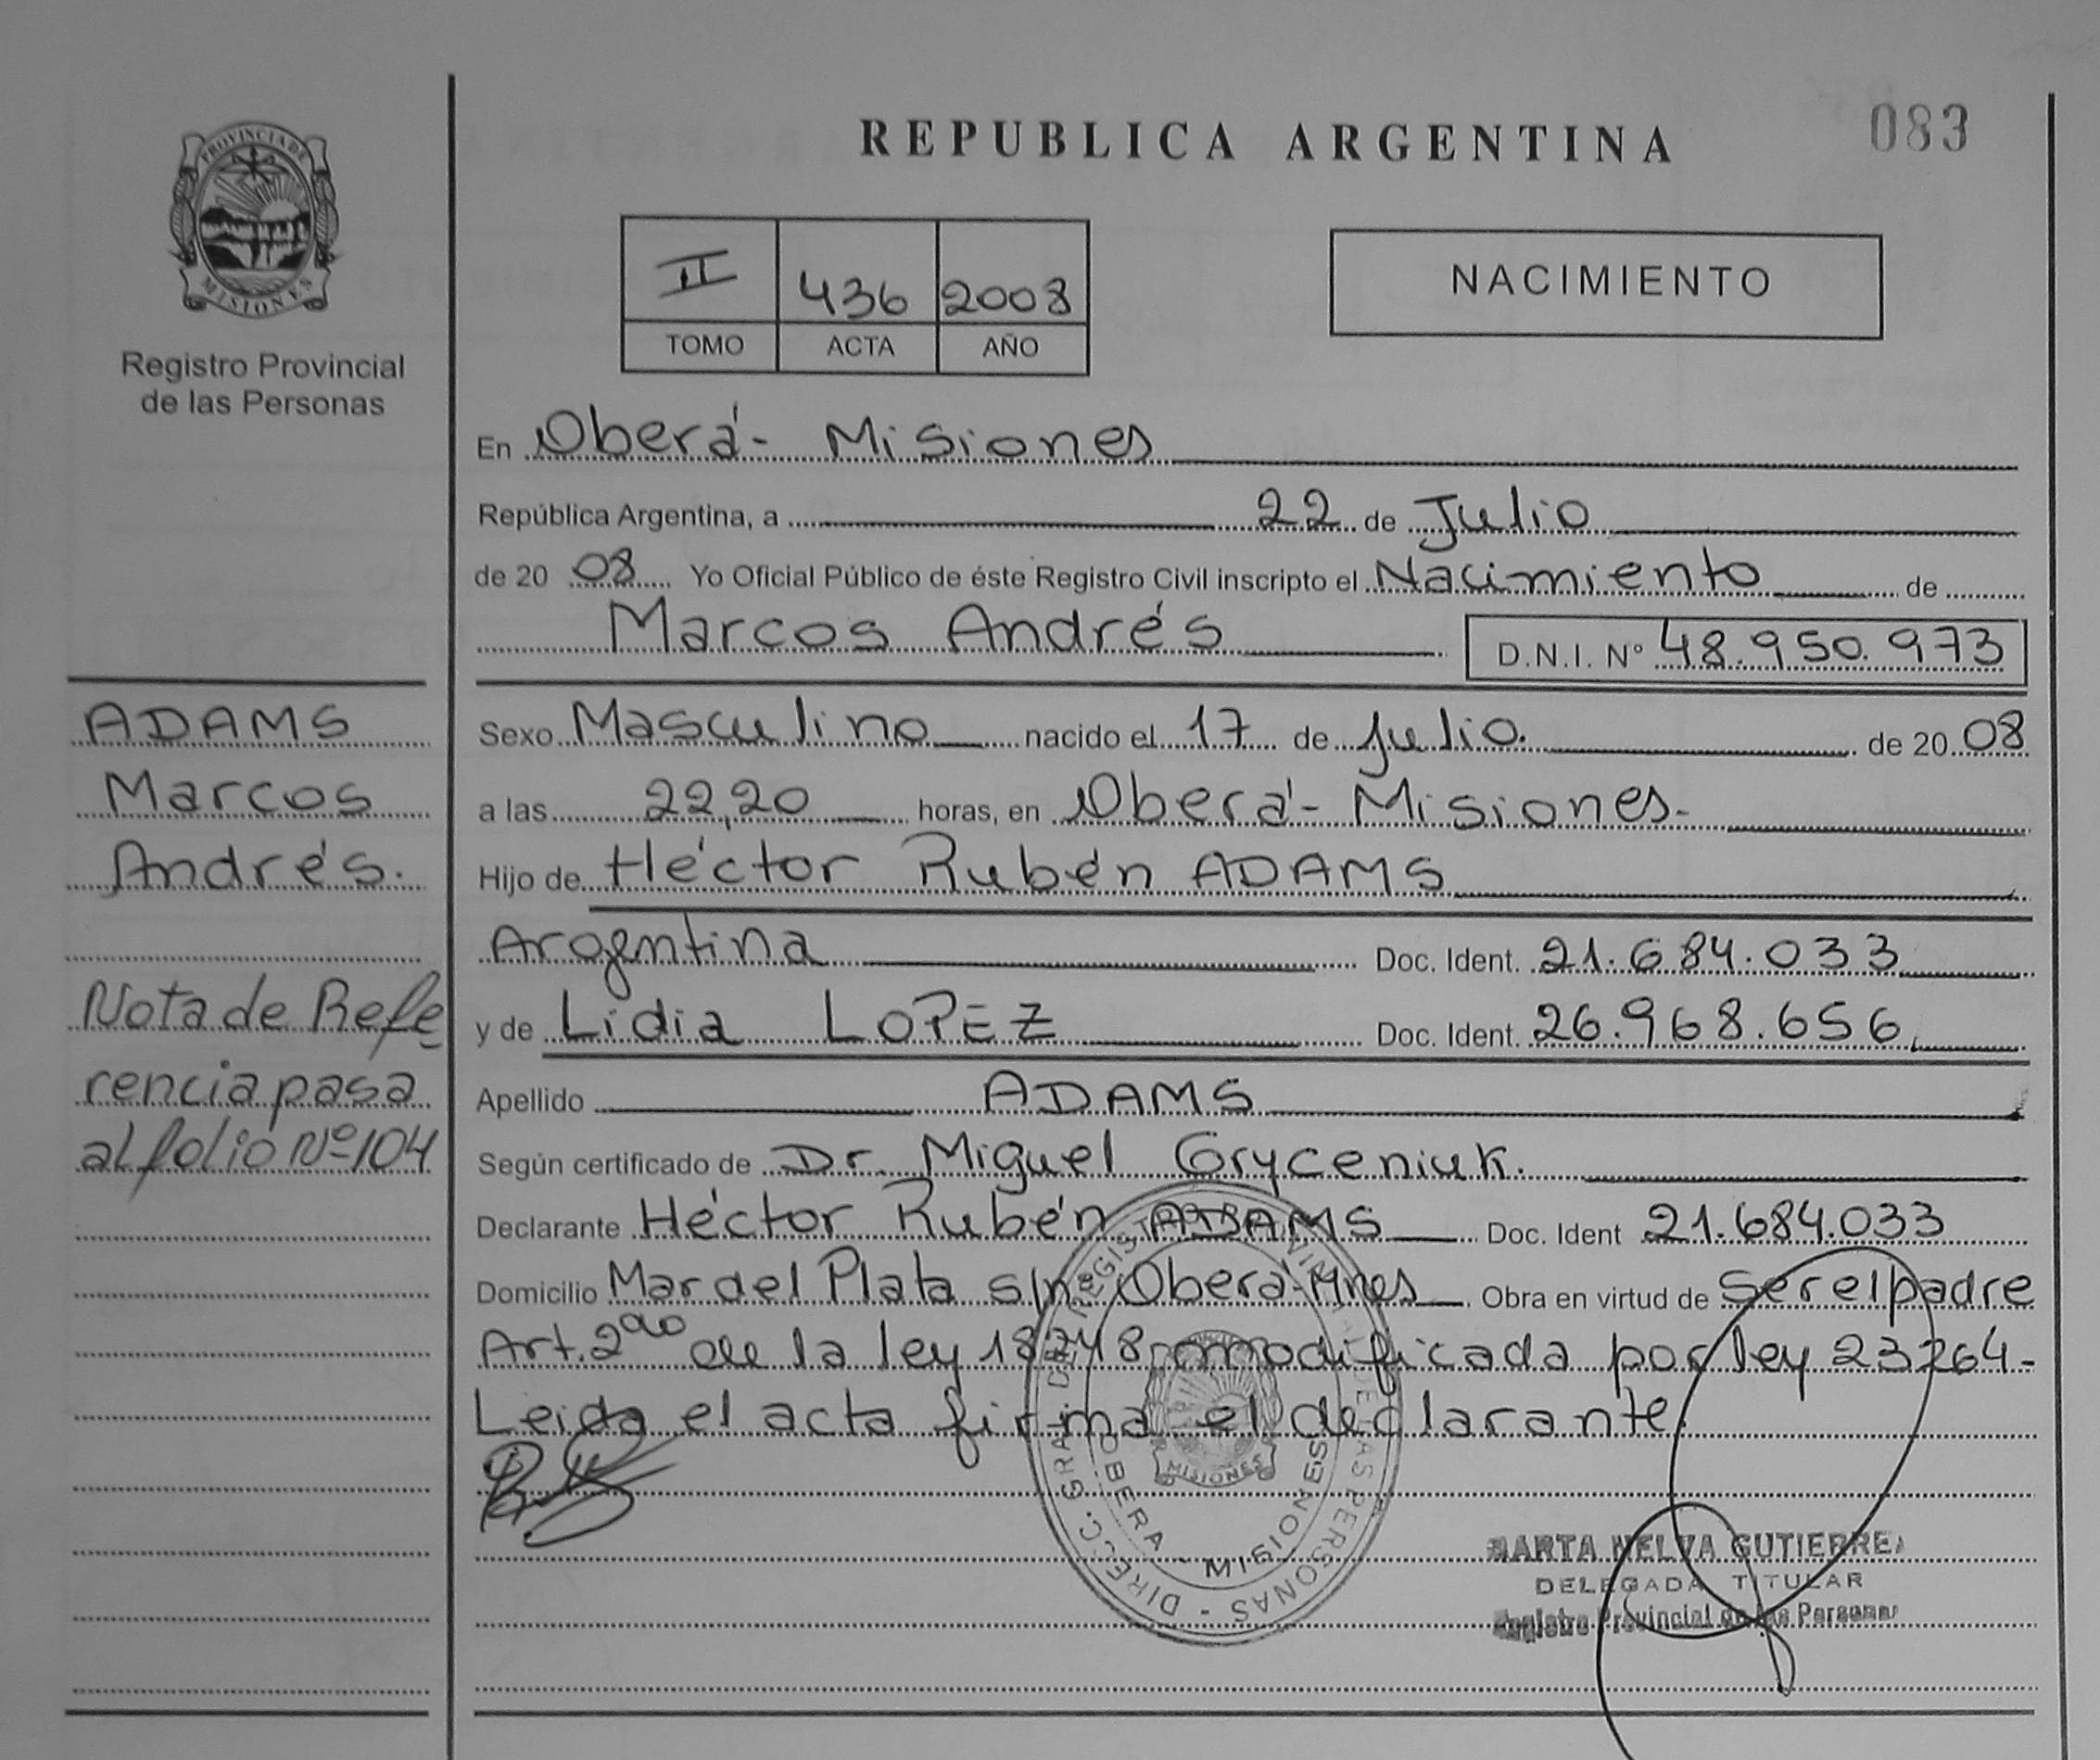 REPUBLICA ARGENTINA
083
PROVINCIA DE
MISIONES
Registro Provincial
de las Personas
II 436 2008
TOMO ACTA AÑO
NACIMIENTO
En Oberá - Misiones
República Argentina, a 22 de Julio
de 20 08 Yo Oficial Público de éste Registro Civil inscripto el Nacimiento de
Marcos Andrés D.N.I. Nº 48.950.973
Sexo Masculino nacido el 17 de Julio. de 20 08
a las 22,20 horas, en Oberá - Misiones-
Hijo de Héctor Rubén ADAMS
Argentina Doc. Ident. 21.684.033
y de Lidia LOPEZ Doc. Ident. 26.968.656
Apellido ADAMS
Según certificado de Dr. Miguel Gryceniuk.
Declarante Héctor Rubén ADAMS Doc. Ident 21.684.033
Domicilio Mar del Plata s/nº Oberá-Mnes Obra en virtud de Ser el padre
Art. 2do de la ley 18248 modificada por ley 23264-
Leida el acta firma el declarante.
ADAMS
Marcos
Andrés.
Nota de Refe
rencia pasa
al folio Nº 104
DIRECC. GRAL. DEL REGISTRO PROVINCIAL DE LAS PERSONAS -
OBERA - MISIONES
MISIONES
MARTA NELVA GUTIERREZ
DELEGADA TITULAR
Registro Provincial de las Personas